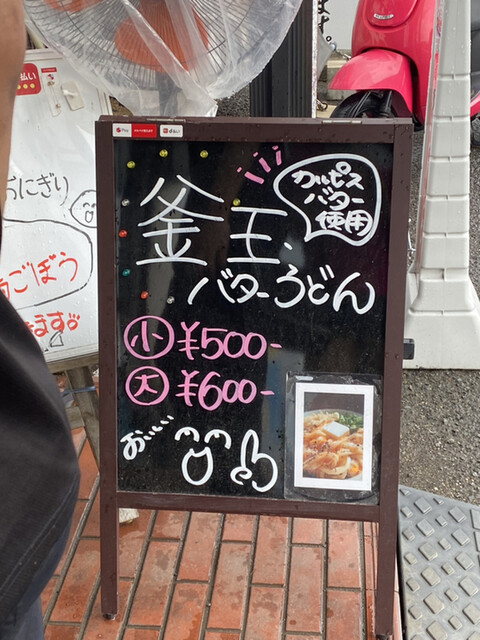 カルピス
バター
使用
釜玉
バターうどん
小 ¥500-
大 ¥600-
おいしい
払い
おにぎり
ごぼう
ます